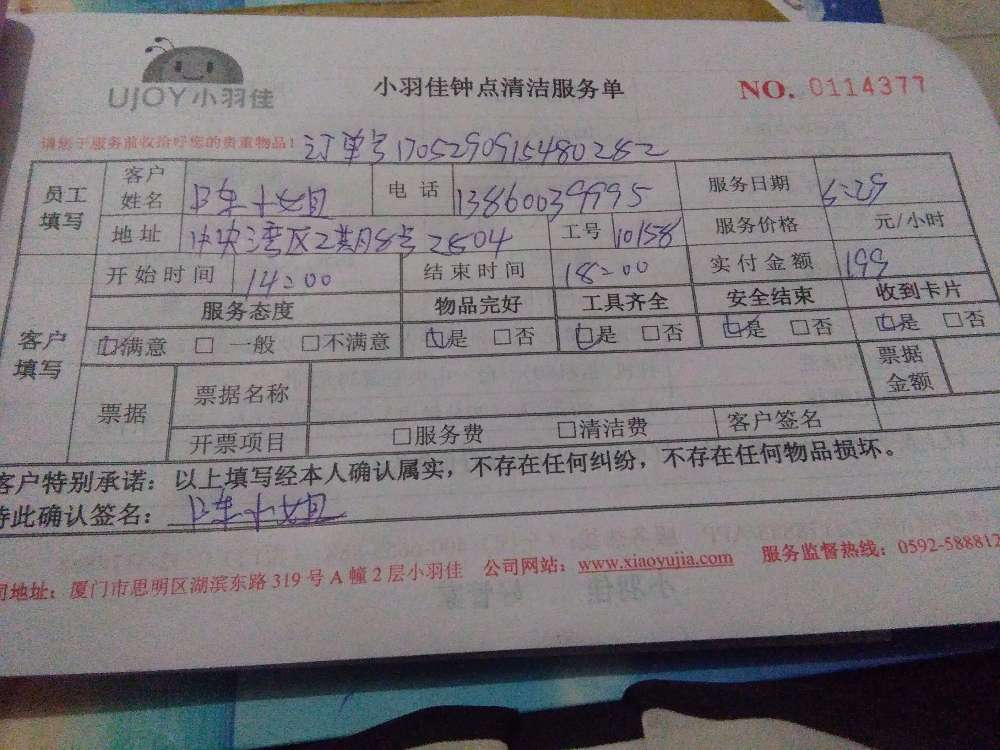 UJOY小羽佳
小羽佳钟点清洁服务单
NO. 0114377
请您于服务前收拾好您的贵重物品！ 订单号1705290915480282
员工填写 客户姓名 陈小姐 电话 13860039995 服务日期 5:29
地址 中央湾区2期8号2504 工号 10158 服务价格 元/小时
客户填写 开始时间 14:00 结束时间 18:00 实付金额 199
服务态度 物品完好 工具齐全 安全结束 收到卡片
☑满意 □ 一般 □不满意 ☑是 □否 ☑是 □否 ☑是 □否 ☑是 □否
票据 票据名称 票据金额
开票项目 □服务费 □清洁费 客户签名
客户特别承诺：以上填写经本人确认属实，不存在任何纠纷，不存在任何物品损坏。
特此确认签名： 陈小姐
司地址：厦门市思明区湖滨东路319号A幢2层小羽佳 公司网站：www.xiaoyujia.com 服务监督热线：0592-588812